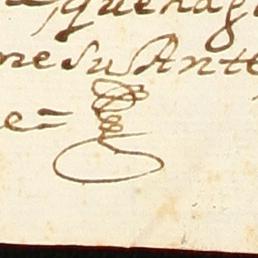 que hag
me su Ante
e=